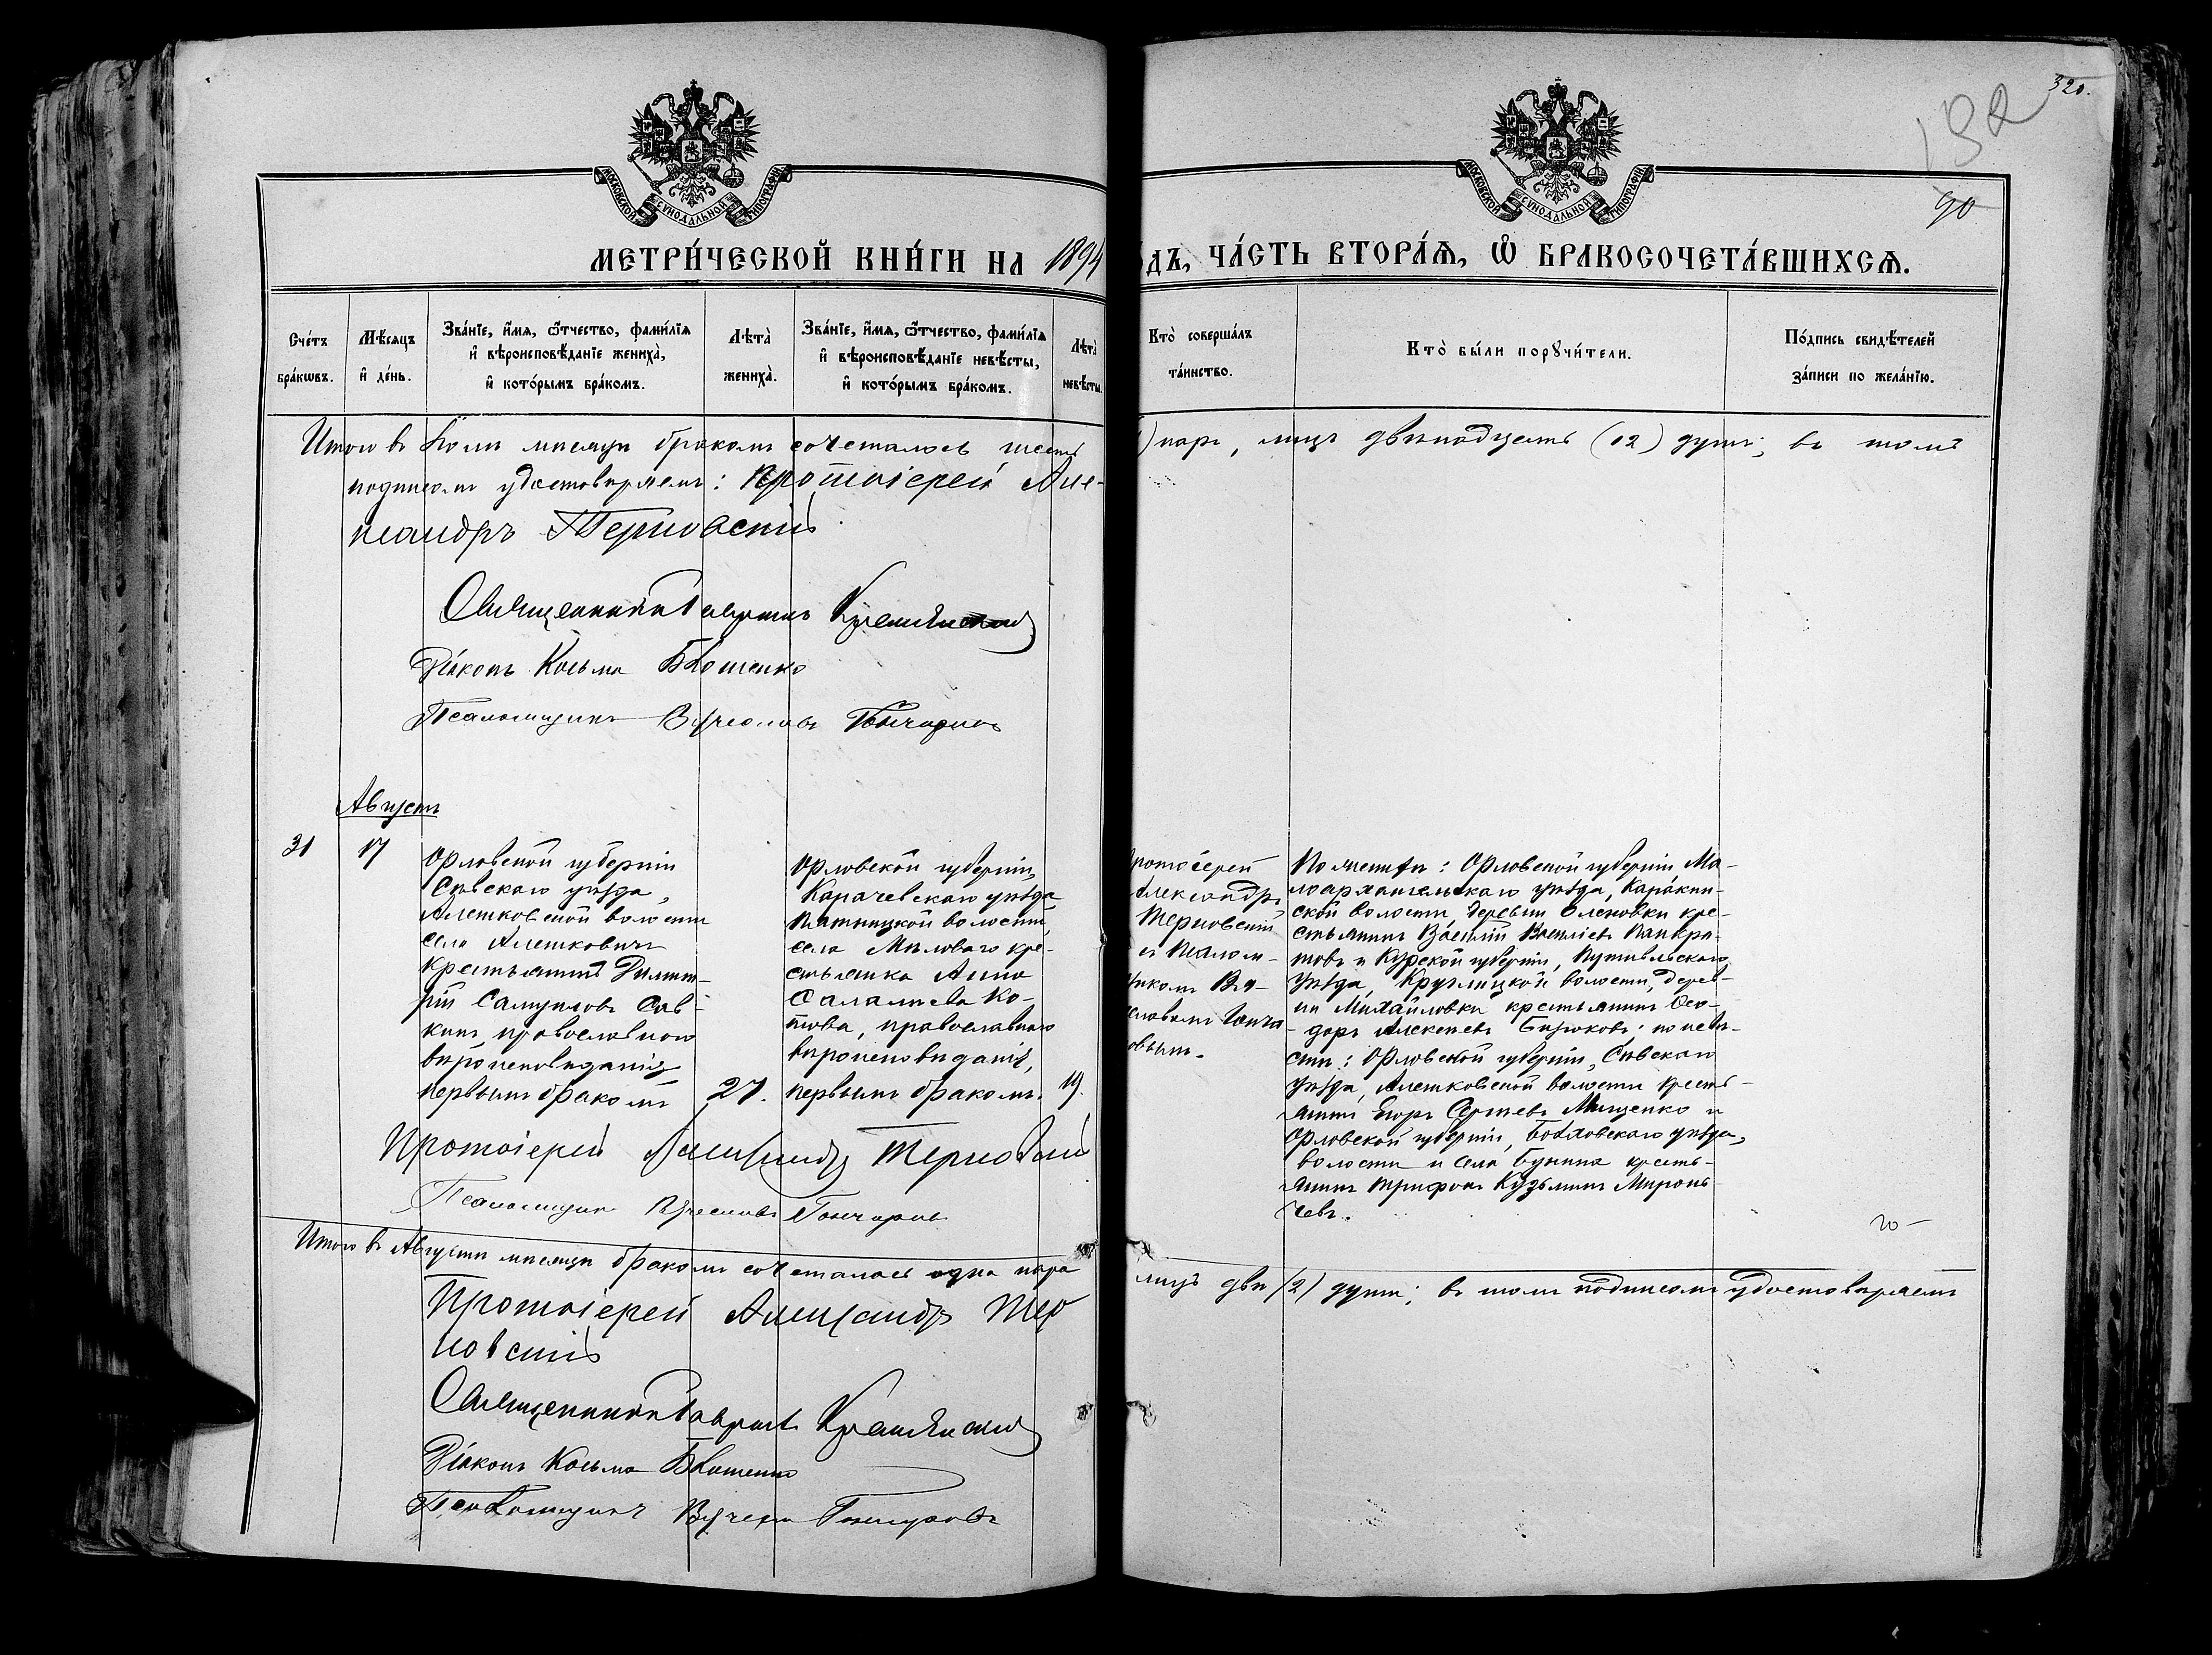 320.
132
90
МОСКОВСКОЙ СѴНОДАЛЬНОЙ ТИПОГРАФІИ
МОСКОВСКОЙ СѴНОДАЛЬНОЙ ТИПОГРАФІИ
МЕТРИ́ЧЕСКОЙ КНИ́ГИ НА 1894
ОДЪ, ЧА́СТЬ ВТОРА́Ѧ, Ѿ БРАКОСОЧЕТА́ВШИХСѦ.
Сче́тъ бра́кѡвъ.
Мѣ́сяцъ и҆ де́нь.
Зва́нїе, и҆́мѧ, ѻ҆́тчество, фами́лїѧ и҆ вѣроисповѣ́данїе жениха̀, и҆ кото́рымъ бра́комъ.
Лѣта̀ жениха̀.
Зва́нїе, и҆́мѧ, ѻ҆́тчество, фами́лїѧ и҆ вѣроисповѣ́данїе невѣ́сты, и҆ кото́рымъ бра́комъ.
Лѣта̀ невѣ́сты.
Кто̀ соверша́лъ та́инство.
Кто̀ бы́ли порꙋчи́тели.
По́дпись свидѣ́телей за́писи по жела́нїю.
Итого въ Іюлѣ мѣсяцѣ бракомъ сочеталось шесть
) паръ, лицъ двѣнадцать (12) душъ; въ томъ
подписомъ удостовѣряемъ: Протоіерей Але-
ксандръ Терновскій
Священникъ Гавріилъ
Діаконъ Косьма
Псаломщикъ Вячеславъ Гончаровъ
Августъ
31
17
Орловской губерніи
Сѣвскаго уѣзда,
Алешковской волости
села Алешковичъ
крестьянинъ Димит-
рій Самуиловъ Сав-
кинъ, православнаго
вѣроисповѣданія,
первымъ бракомъ
27.
Орловской губерніи,
Карачевскаго уѣзда
Пятницкой волости,
села Милова́го кре-
стьянка Анна
Саламиева Ко-
това, православнаго
вѣроисповѣданія,
первымъ бракомъ.
19.
Протоіерей
Александръ
Терновскій
съ Псалом-
щикомъ Вя-
чеславомъ Гонча-
ровымъ.
По женихѣ: Орловской губерніи, Ма-
лоархангельскаго уѣзда, Каракин-
ской волости, деревни Оленовки кре-
стьянинъ Василій Васильевъ Панкра-
товъ и Курской губерніи, Путивльскаго
уѣзда, Круглицкой волости, дерев-
ни Михайловки крестьянинъ Ѳео-
доръ Алексѣевъ Бирюковъ; по невѣ-
стѣ: Орловской губерніи, Сѣвскаго
уѣзда, Алешковской волости кресть-
янинъ Егоръ Сергѣевъ Мищенко и
Орловской губерніи, Болховскаго уѣзда,
волости и села Бунина кресть-
янинъ Трифонъ Кузьминъ Мироны-
чевъ.
Протоіерей Александръ Терновскій
Псаломщикъ Вячеславъ Гончаровъ
Итого въ Августѣ мѣсяцѣ бракомъ сочеталась одна пара
лицъ двѣ (2) души; въ томъ подписомъ удостовѣряемъ
Протоіерей Александръ Тер
новскій
Священникъ Гавріилъ
Діаконъ Косьма
Псаломщикъ Вячеславъ Гончаровъ